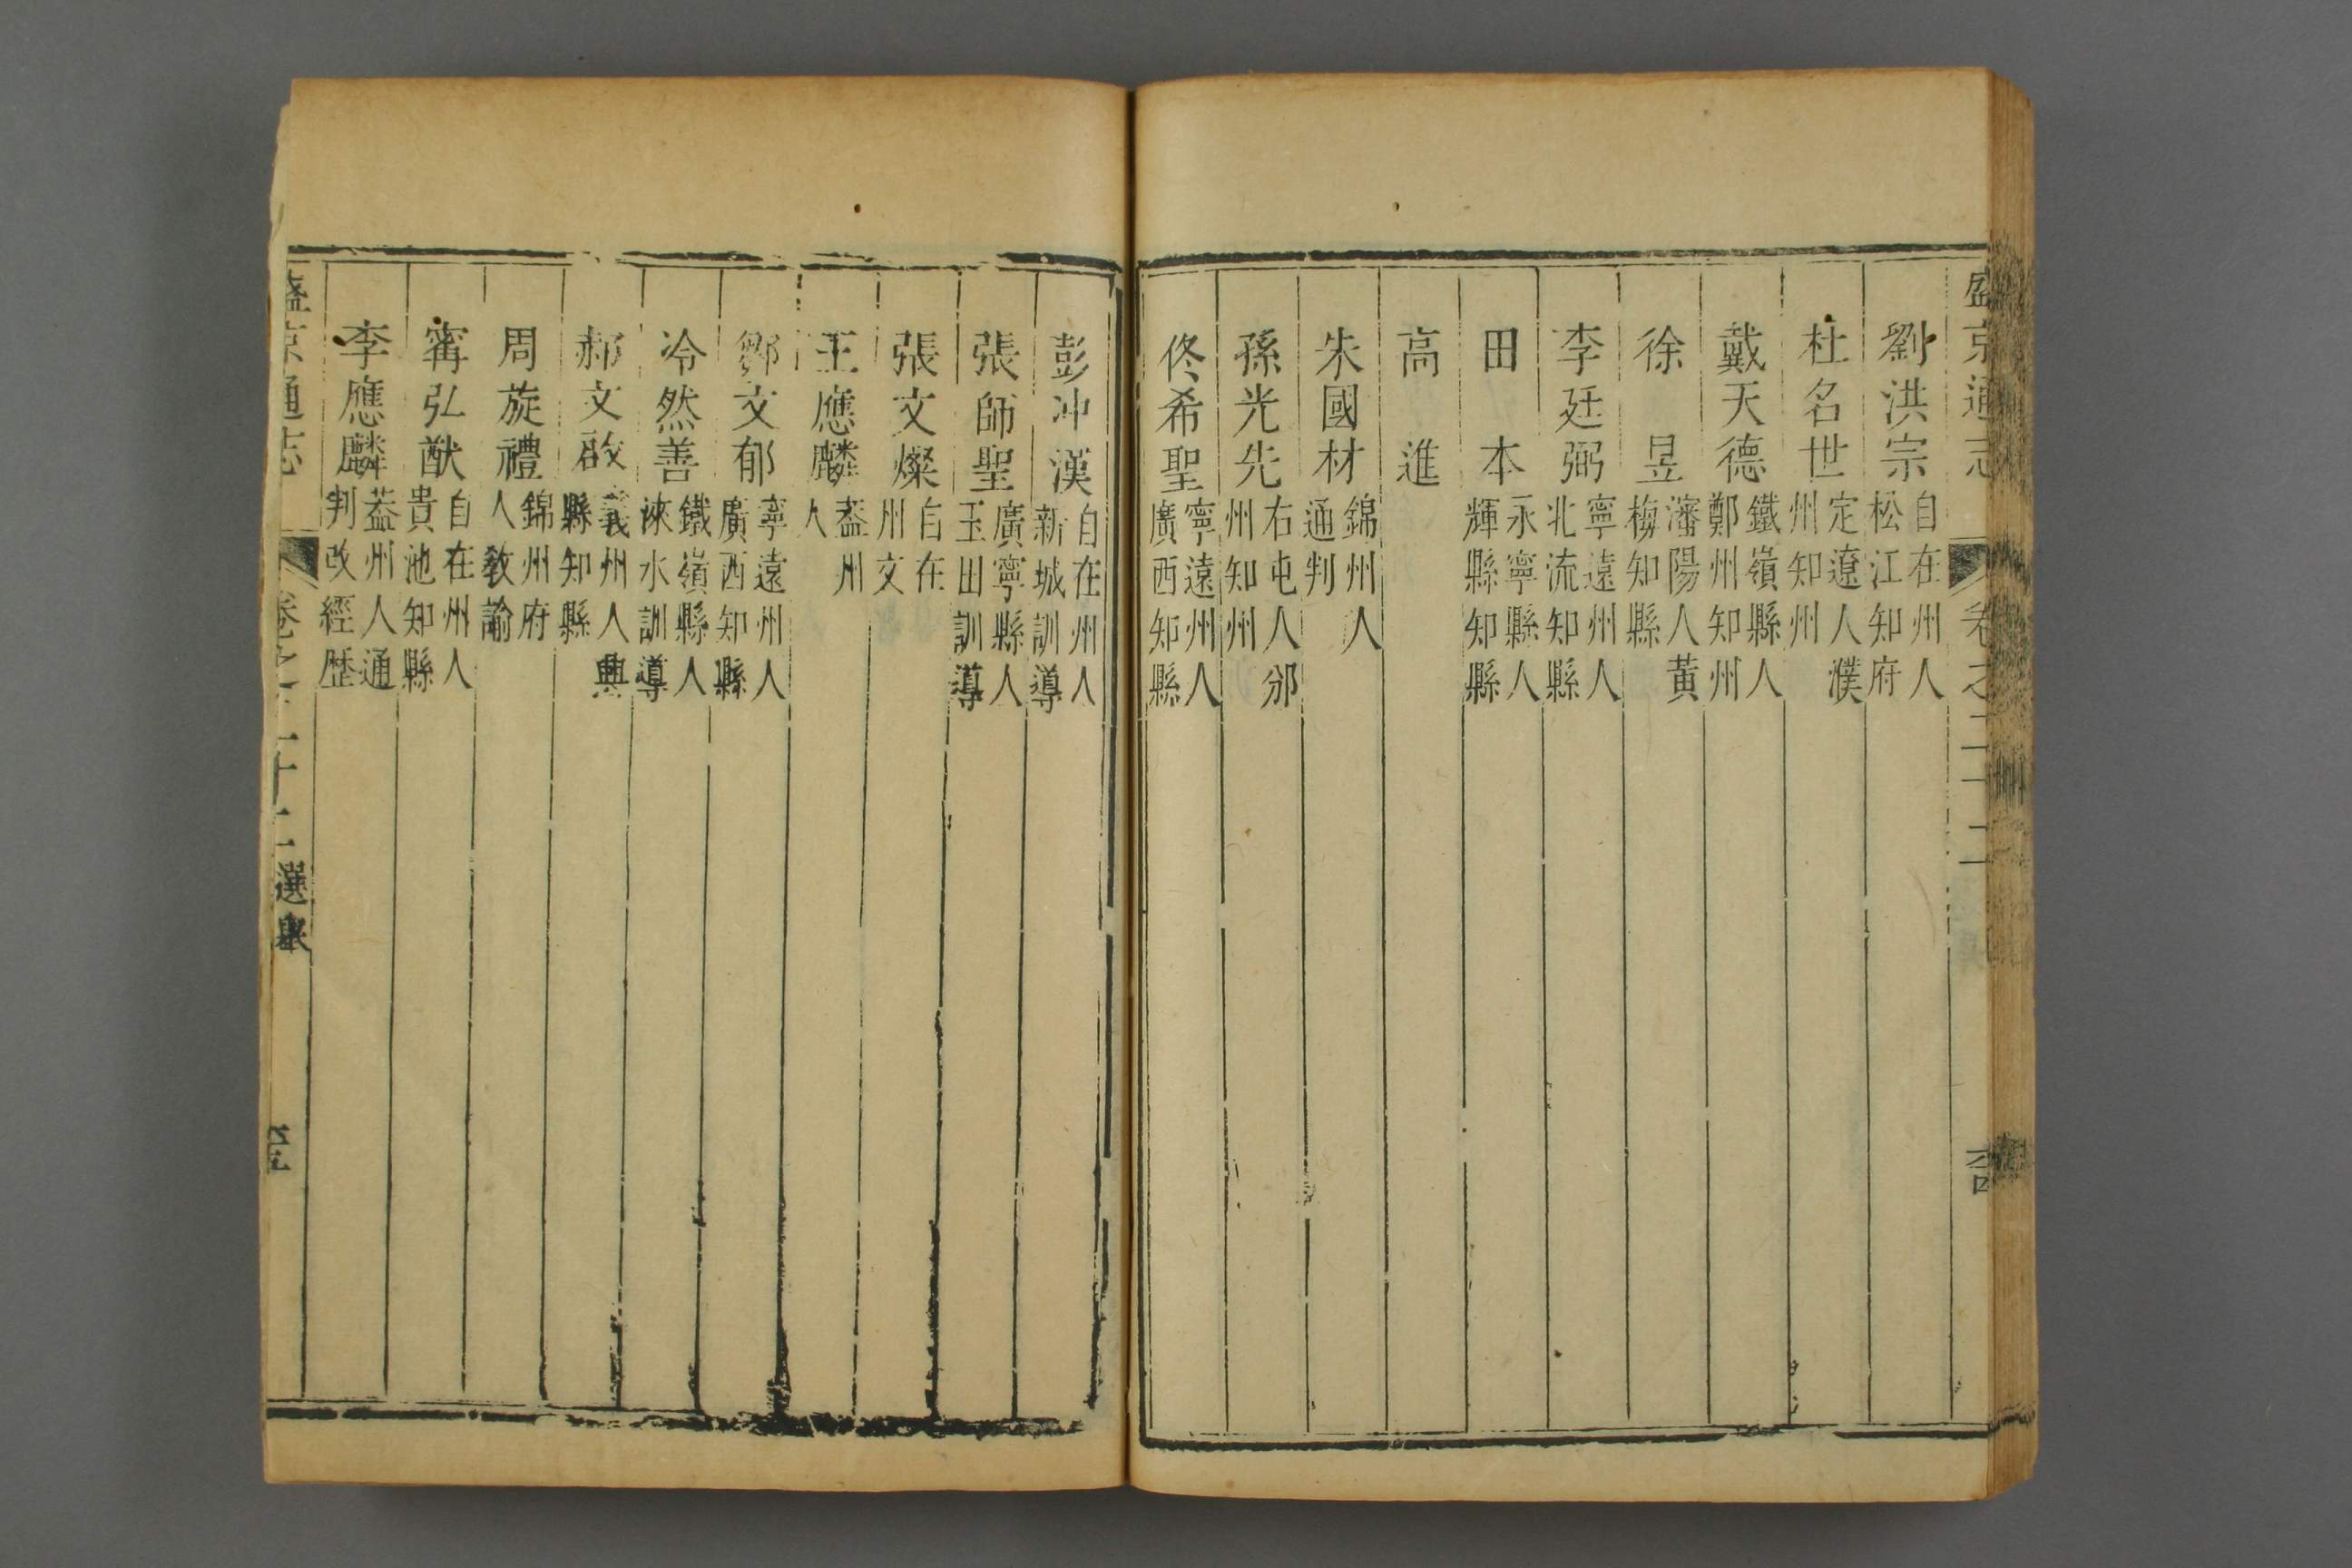 盛京通志 卷之二十二
劉洪宗 自在州人松江知府
杜名世 定遼人濮州知州
戴天德 鐵嶺縣人鄭州知州
徐昱 瀋陽人黃梅知縣
李廷弼 寧遠州人北流知縣
田本 永寧縣人輝縣知縣
高進
朱國材 錦州人通判
孫光先 右屯人邠州知州
佟希聖 寧遠州人廣西知縣
彭冲漢 自在州人新城訓導
張師聖 廣寧縣人玉田訓導
張文燦 自在州文
王應麟 葢州人
鄒文郁 寧遠州人廣西知縣
冷然善 鐵嶺縣人淶水訓導
郝文啟 義州人興縣知縣
周旋禮 錦州府人教諭
甯弘猷 自在州人貴池知縣
李應麟 葢州人通判改經歷
盛京通志 卷之二十二 選舉